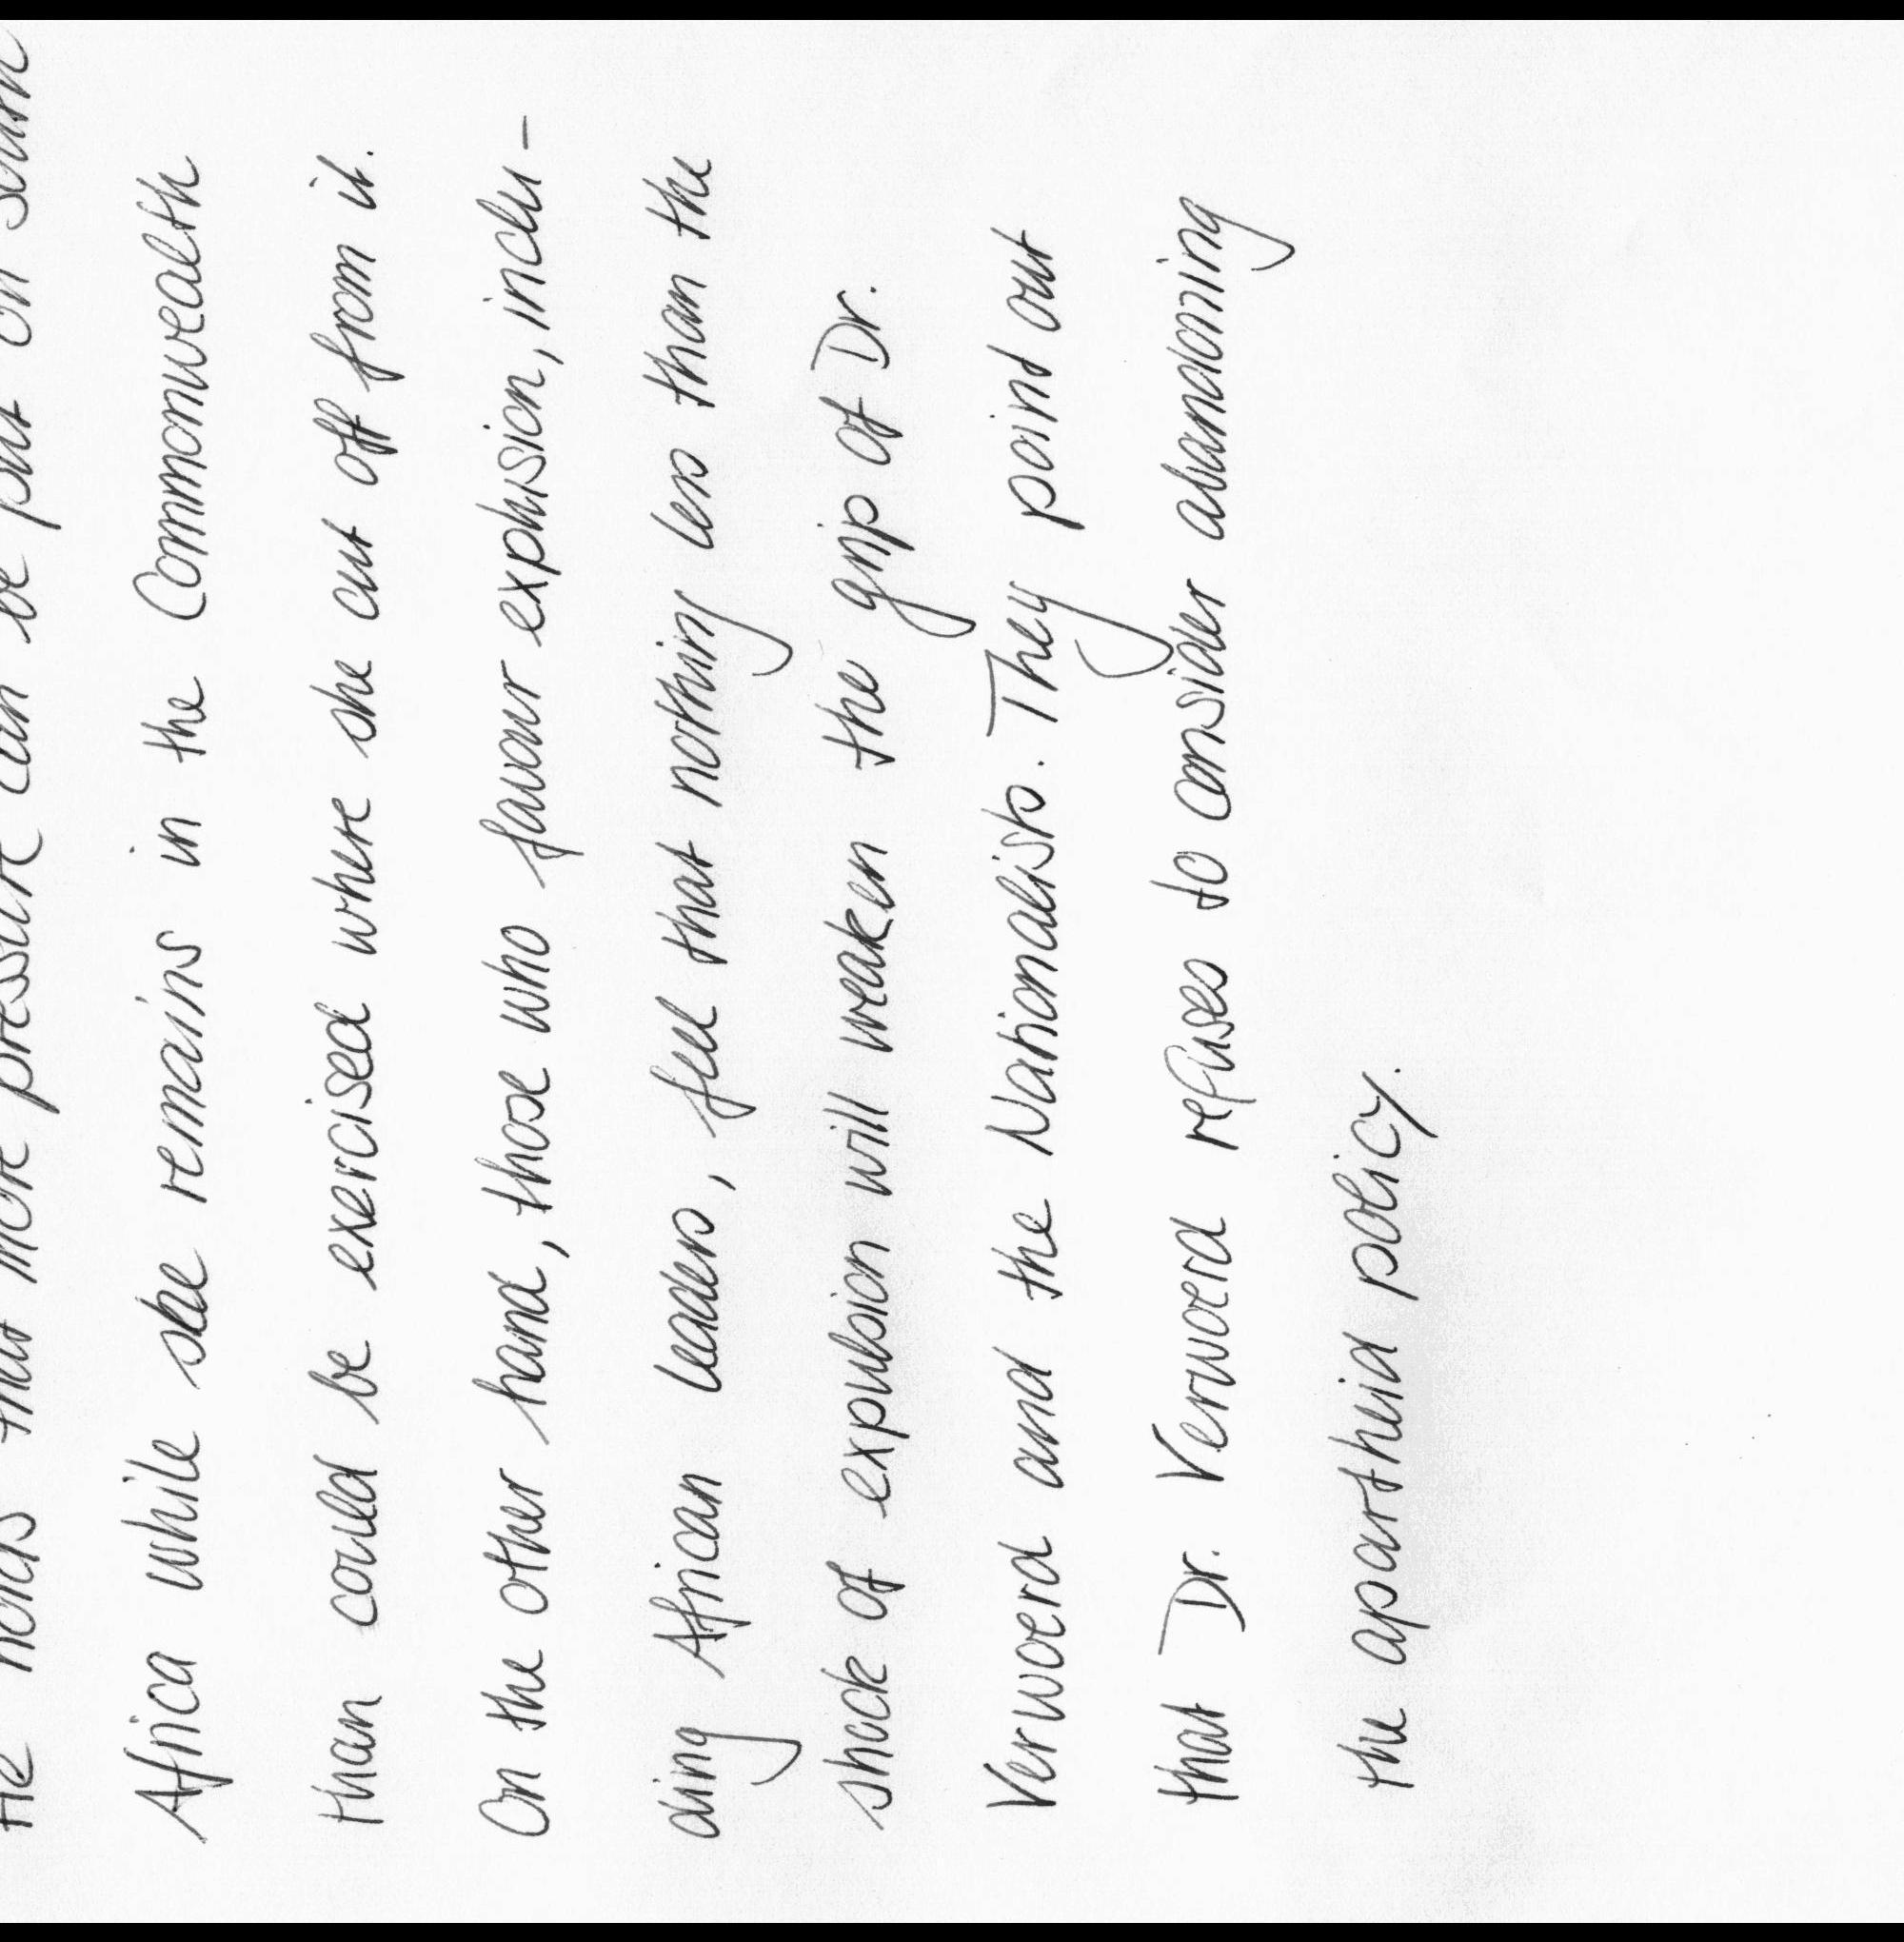 He holds that more pressure can be put on South
Africa while she remains in the Commonwealth
than could be exercised where she cut off from it.
On the other hand, those who favour explusion, inclu-
ding African leaders, feel that nothing less than the
shock of expulsion will weaken the grip of Dr.
Verwoerd and the Nationalists. They point out
that Dr. Verwoerd refuses to consider abandoning
the apartheid policy.